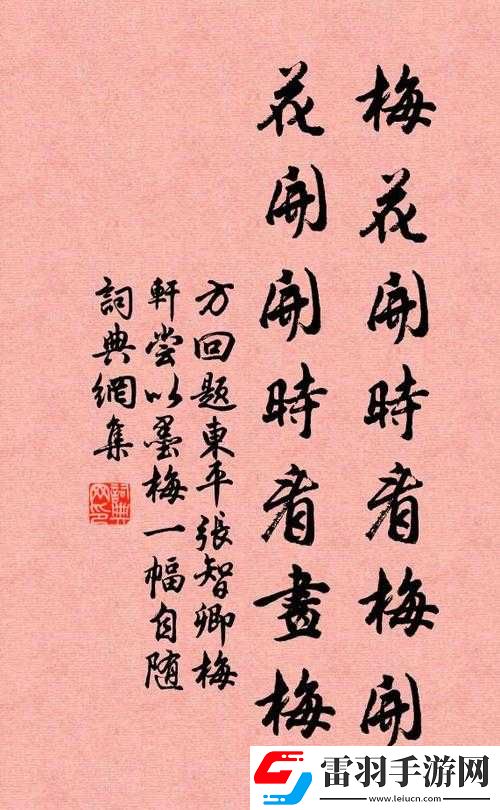 梅花開時看梅開
花開開時看畫梅
方回題東平張智卿梅
軒嘗以墨梅一幅自随
詞典網集
詞典网印
雷羽手游网
www.leiucn.com